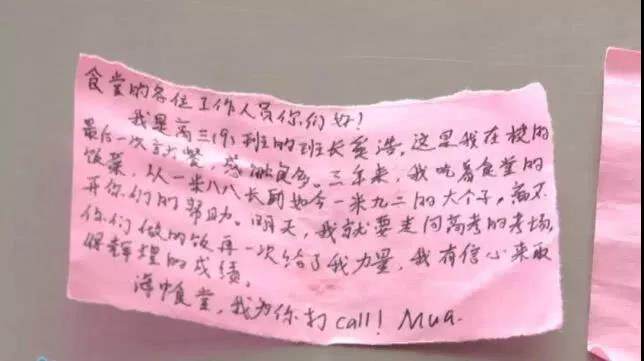 食堂的各位工作人员你们好!
我是高三(9)班的班长奚浩,这是我在校的
最后一次就餐,感触良多。三年来,我吃着食堂的
饭菜,从一米八八长到如今一米九二的大个子。离不
开你们的帮助。明天,我就要走向高考的考场,
你们做的饭再一次给了我力量,我有信心来取
得辉煌的成绩。
海中食堂,我为你打call! Mua.